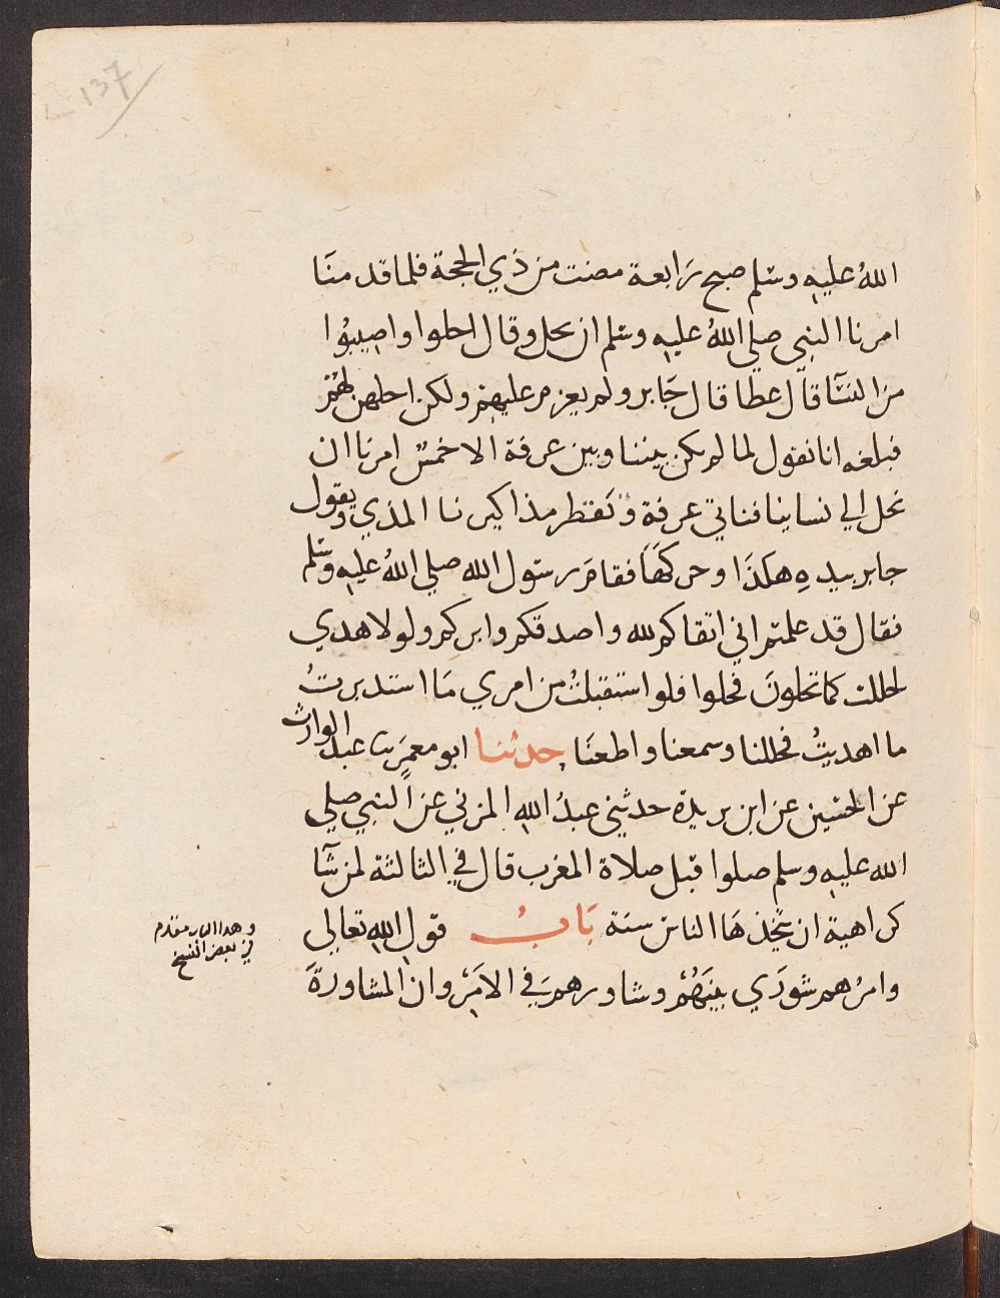 137
اللهُ عليه وسلم صبح رَابعة مضت من ذي الحجة فلما قدمنَا
امرنا النبي صلي اللهُ عليه وسلم ان نحل وقال احلوا واصيبُوا
من النسَآ قال عطا قال جَابر ولم يعزم عليهم ولكن احلهن لهُم
فبلغه انا نقول لما لم يكن بيننا وبين عرفة الا خمسٌ امرنا ان
نحل الي نساينا فناتي عرفة وَتَقطر مذاكيرنا المذي ويقول
جابر بيدهِ هكَذَا وحركهَا فقامَ رسول الله صلي اللهُ عليه وسلم
فقال قد علمتم اني اتقاكم لله واصدقكم وابركم ولولا هديي
لحللت كما تحلونَ فحلوا فلو استقبلتُ من امري مَا استدبرتُ
ما اهديتُ فحللنا وسمعنا واطعنَا حدثنا ابو معمَر ثنا عبد الوارث
عن الحسين عن ابن بريدة حدثني عبدُ الله المزني عن النبي صلي
الله عليه وسلم صلوا قبل صلاة المغرب قال في الثالثة لمن شَآ
كراهية ان يتخذهَا الناس سنة بَابُ قول الله تعالي
وامرُهم شورَي بينَهُمْ وشاورهم في الامْر وان المشاورةَ
وهذا الباب مقدم
في بعض النسخ